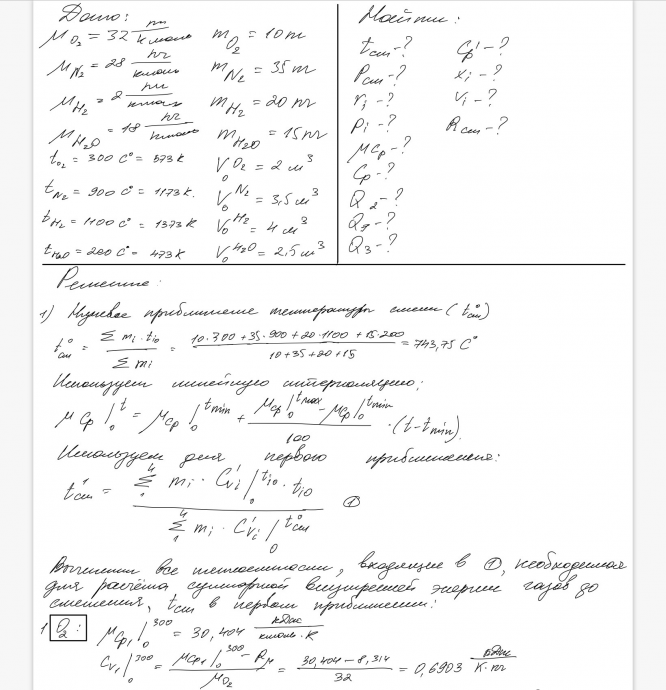 Дано:
Найти:
μ O₂ = 32 кг/кмоль m O₂ = 10 кг
tсм - ? Cp' - ?
μ N₂ = 28 кг/кмоль m N₂ = 35 кг
Pсм - ? xi - ?
μ H₂ = 2 кг/кмоль m H₂ = 20 кг
ri - ? vi - ?
μ H₂O = 18 кг/кмоль m H₂O = 15 кг
Pi - ? Rсм - ?
t O₂ = 300 C° = 573 K V₀ O₂ = 2 м³
μCp - ?
Cp - ?
t N₂ = 900 C° = 1173 K. V₀ N₂ = 3,5 м³
Q 2 - ?
t H₂ = 1100 C° = 1373 K V₀ H₂ = 4 м³
t H₂O = 200 C° = 473 K V₀ H₂O = 2,5 м³
Q3 - ?
Решение:
1) Нулевое приближение температуры смеси (t°см)
t°см = Σ mi · ti0 / Σ mi = 10·300 + 35·900 + 20·1100 + 15·200 / 10+35+20+15 = 743,75 C°
Используем линейную интерполяцию:
μCp |₀ᵗ = μCp |₀ᵗᵐⁱⁿ + μCp |₀ᵗᵐᵃˣ - μCp |₀ᵗᵐⁱⁿ / 100 · (t - tmin).
Используем для первого приближения:
t¹см = Σ₁⁴ mi · C'vi |₀ ti0 · ti0 / Σ₁⁴ mi · C'vi |₀ t°см ①
Вычислим все теплоемкости, входящие в ①, необходимая
для расчёта суммарной внутренней энергии газов до
смешения, tсм в первом приближении:
1 O₂: μCp₁ |₀³⁰⁰ = 30,404 кДж/кмоль·К
Cv₁ |₀³⁰⁰ = μCp₁ |₀³⁰⁰ - Rμ / μ O₂ = 30,404 - 8,314 / 32 = 0,6903 кДж/К·кг